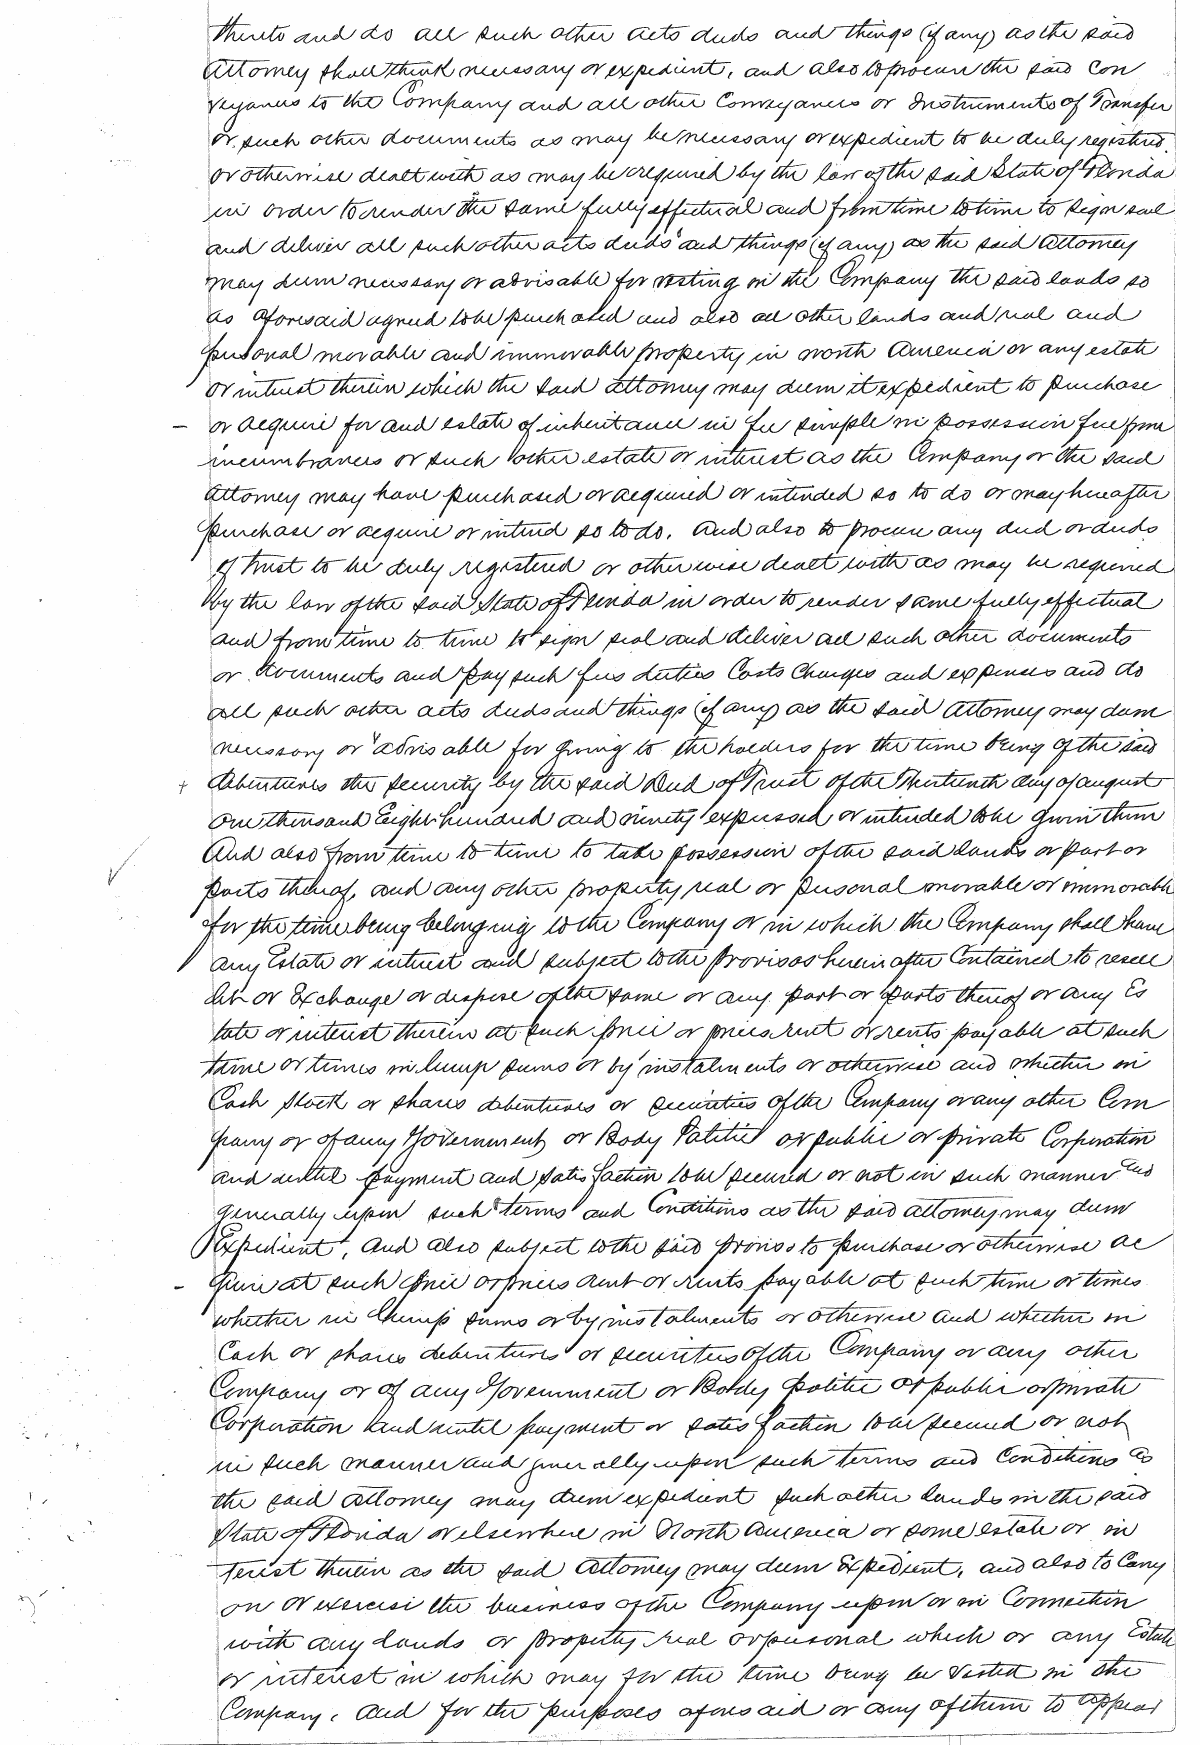 thereto and do all such other acts deeds and things (if any) as the said
Attorney shall think necessary or expedient, and also to procure the said Con
veyances to the Company and all other Conveyances or Instruments of Transfer
or such other documents as may be necessary or expedient to be duly registered
or otherwise dealt with as may be required by the law of the said State of Florida
in order to render the same fully effectual and from time to time to sign seal
and deliver all such other acts deeds and things (if any) as the said Attorney
may deem necessary or advisable for vesting in the Company the said lands so
as aforesaid agreed to be purchased and also all other lands and real and
personal movable and immovable property in north America or any estate
or interest therein which the said Attorney may deem it expedient to purchase
– or acquire for and estate of inheritance in fee simple in possession free from
incumbrances or such other estate or interest as the Company or the said
Attorney may have purchased or acquired or intended so to do or may hereafter
purchase or acquire or intend so to do. And also to procure any deed or deeds
of trust to be duly registered or otherwise dealt with as may be required
by the law of the said State of Florida in order to render same fully effectual
and from time to time to sign seal and deliver all such other documents
or documents and pay such fees duties Costs Charges and expenses and do
all such other acts deeds and things (if any) as the said Attorney may deem
necessary or advisable for giving to the holders for the time being of the said
+ debentures the security by the said Deed of Trust of the Thirteenth day of august
one thousand Eight hundred and ninety expressed or intended to be given them
And also from time to time to take possession of the said lands or part or
parts thereof, and any other property real or personal movable or immovable
for the time being belonging to the Company or in which the Company shall have
any Estate or interest and subject to the provisos herein after Contained to resell
let or Exchange or dispose of the same or any part or parts thereof or any Es
tate or interest therein at such price or prices rent or rents payable at such
time or times in lump sums or by instalments or otherwise and whether in
Cash Stock or shares debentures or securities of the Company or any other Com
pany or of any Government or Body Politic or public or private Corporation
and until payment and satisfaction to be secured or not in such manner and
generally upon such terms and Conditions as the said attorney may deem
Expedient, And also subject to the said proviso to purchase or otherwise ac
– quire at such price or prices rent or rents payable at such time or times
whether in lump sums or by instalments or otherwise and whether in
Cash or shares debentures or securities of the Company or any other
Company or of any Government or Body politic or public or private
Corporation and until payment or satisfaction to be secured or not
in such manner and generally upon such terms and Conditions as
the said Attorney may deem expedient such other lands in the said
State of Florida or elsewhere in North America or some estate or in
terest therein as the said Attorney may deem Expedient, and also to Carry
on or exercise the business of the Company upon or in Connection
with any lands or property real or personal which or any Estate
or interest in which may for the time being be vested in the
Company, And for the purposes aforesaid or any of them to appear